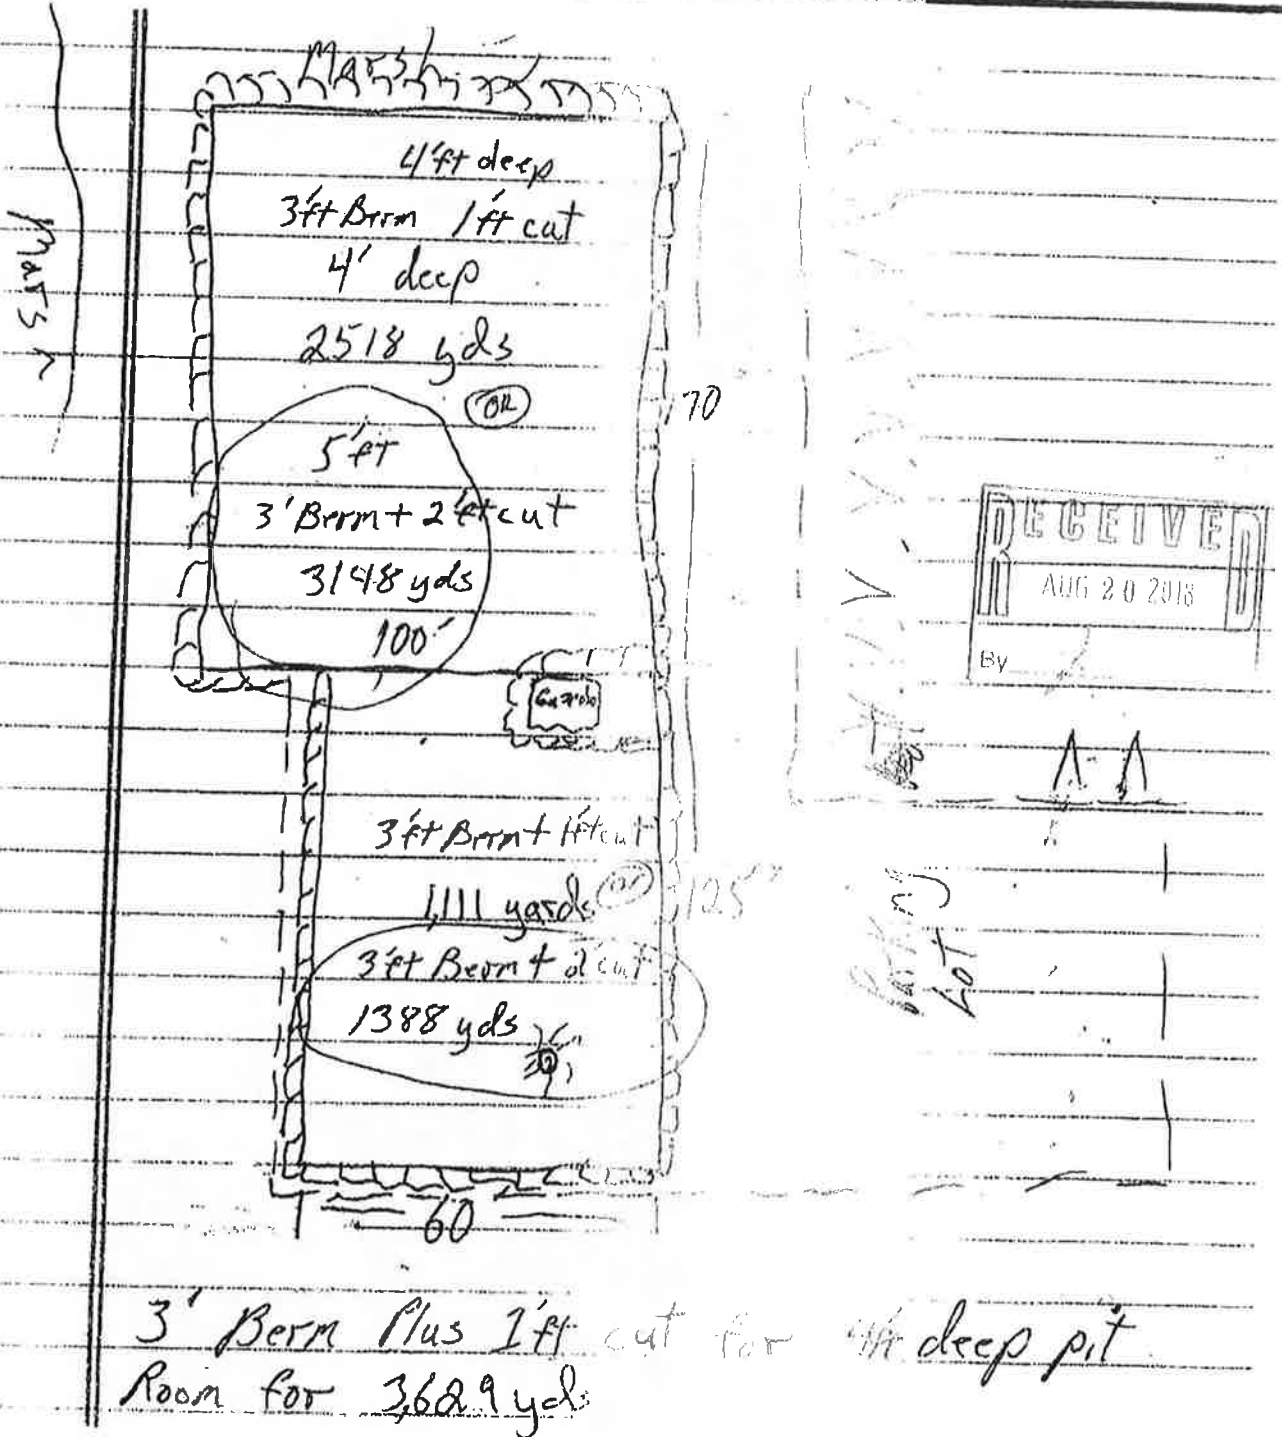 Marsh
Marsh
4'ft deep
3'ft Berm 1'ft cut
4' deep
2518 yds
OR
5'ft
3' Berm + 2'ft cut
3148 yds
100'
70
Gazebo
3'ft Berm + 1'ft cut
1,111 yards or
125'
3'ft Berm + 2' cut
1388 yds
60
RECEIVED
AUG 20 2018
By
Parking
Lot
3' Berm Plus 1'ft cut for 4ft deep pit
Room for 3,629 yds